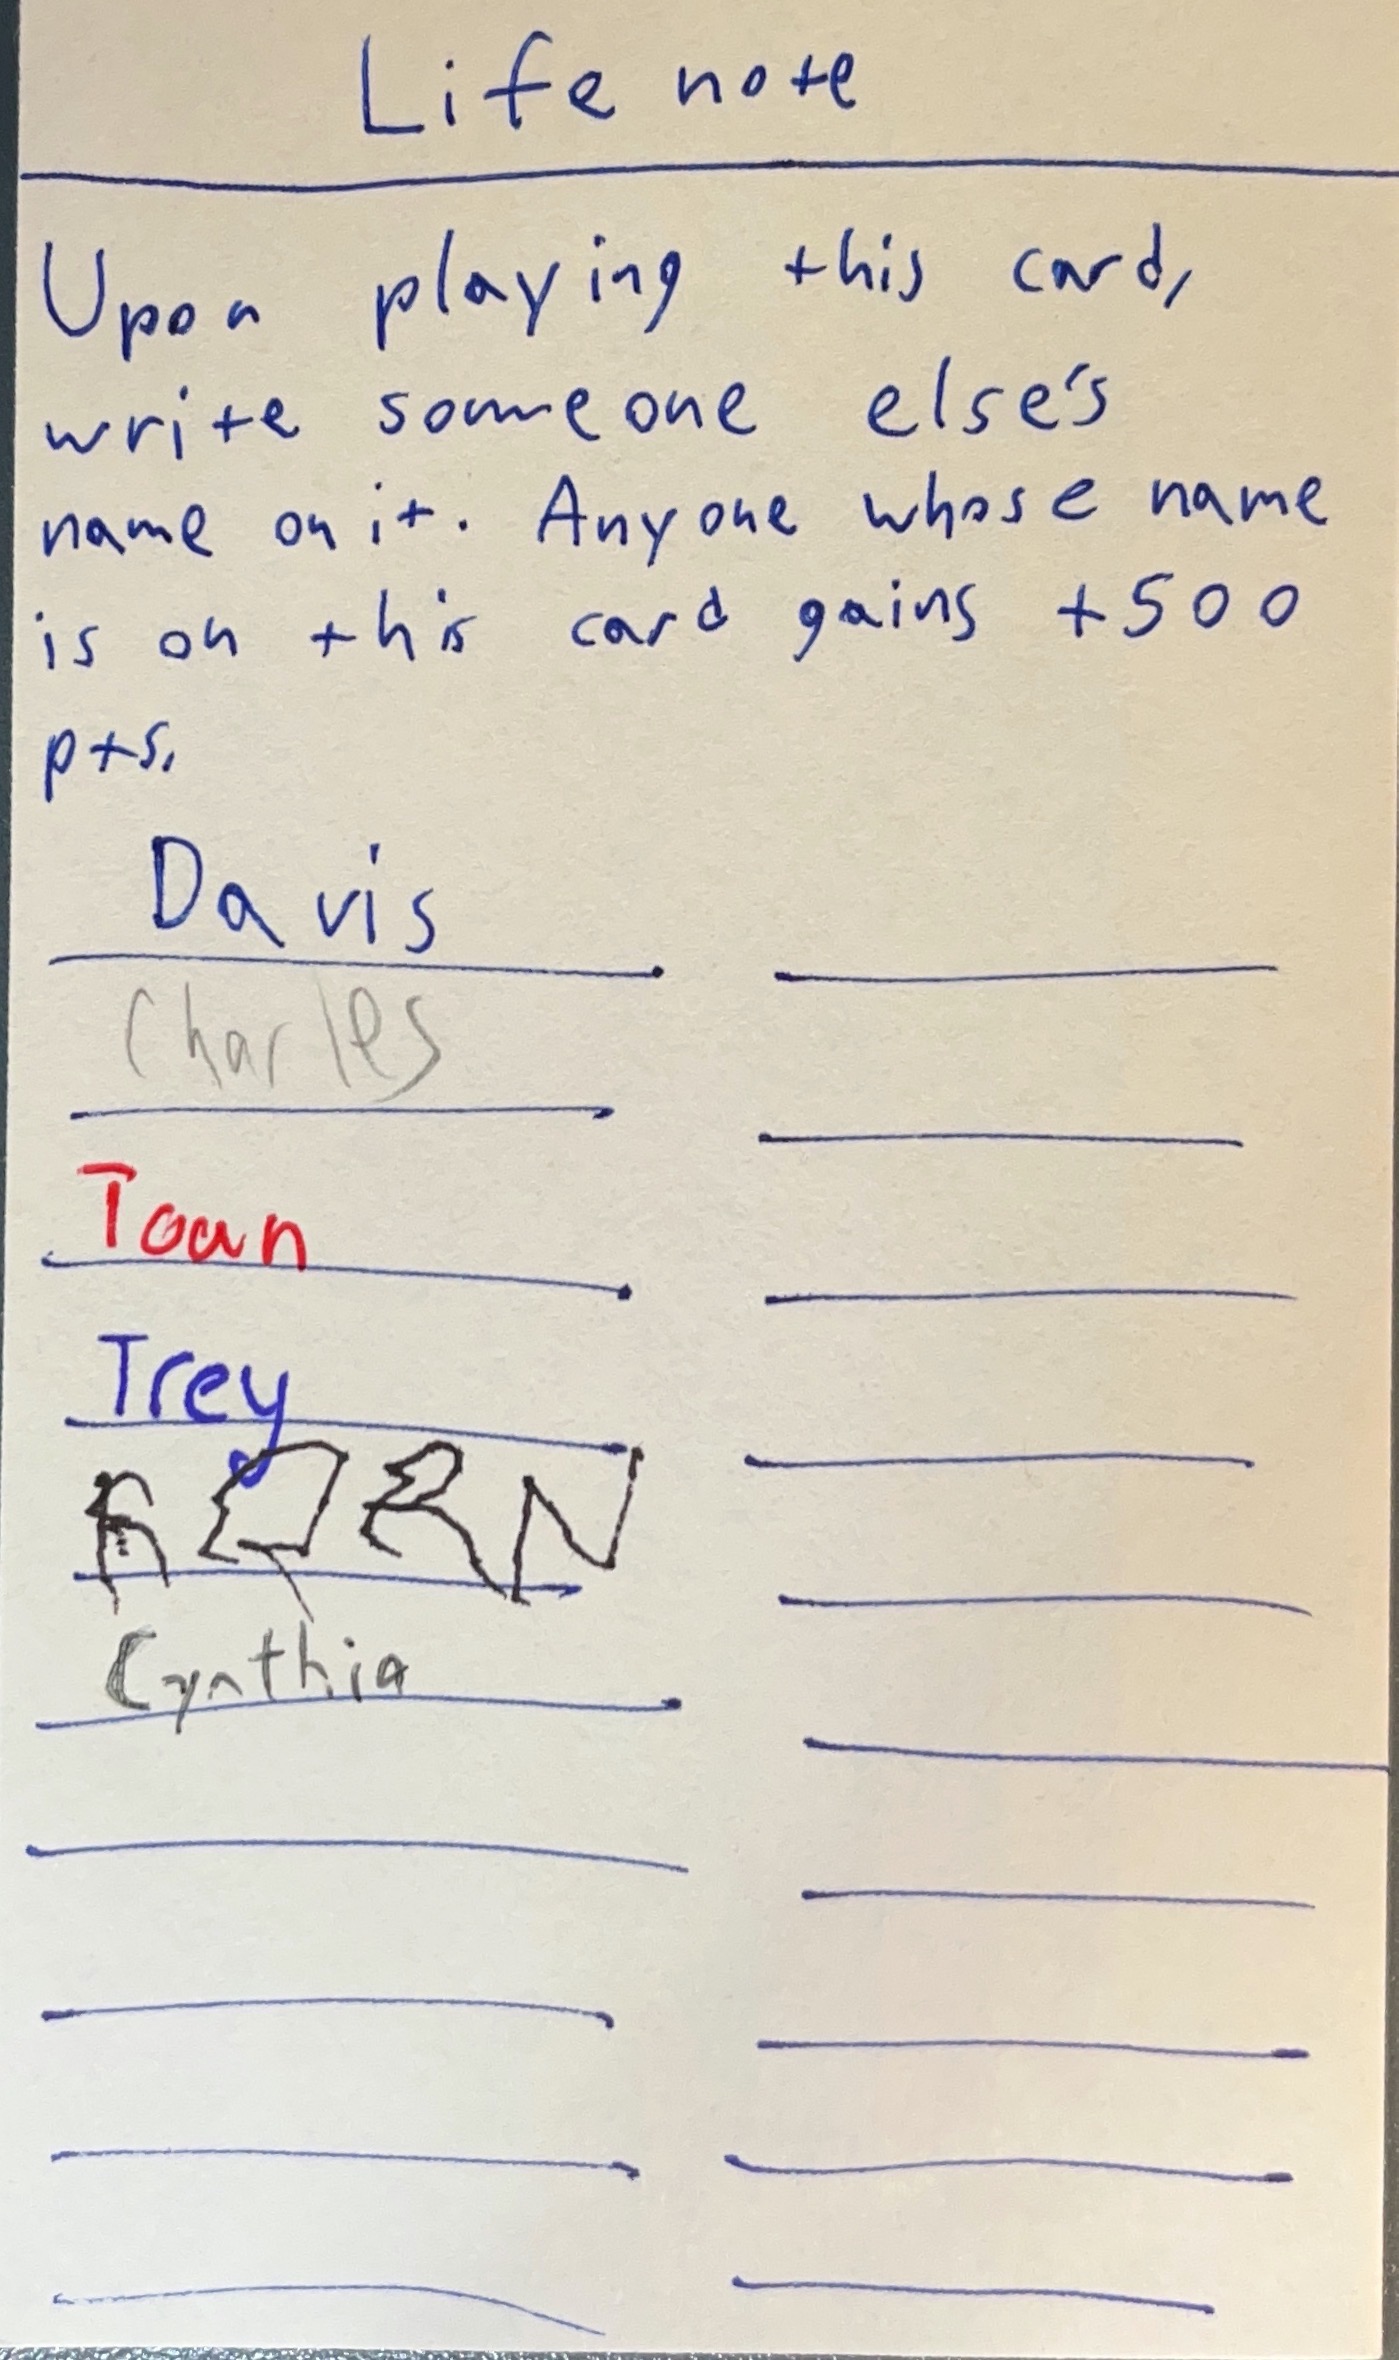 Life note
Upon playing this card,
write someone else's
name on it. Anyone whose name
is on this card gains +500
pts.
Davis
Charles
Toan
Trey
Cynthia